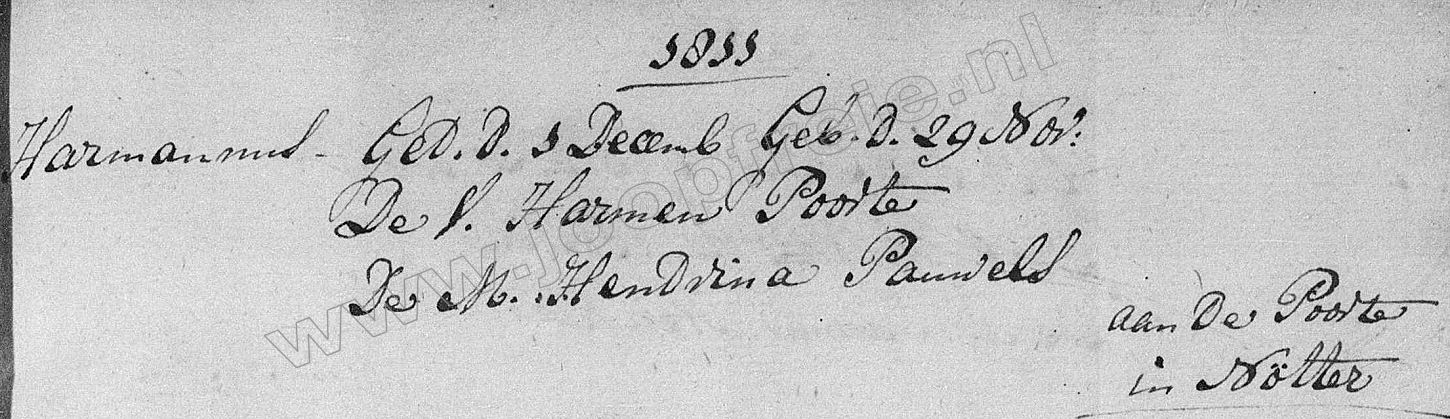 1811
Harmannus - Ged. D. 1 Decemb Geb. D. 29 Nov:
De V. Harmen Poorte
De M. Hendrina Pauwels
aan De Poorte
in Nötter
www.joopfirje.nl